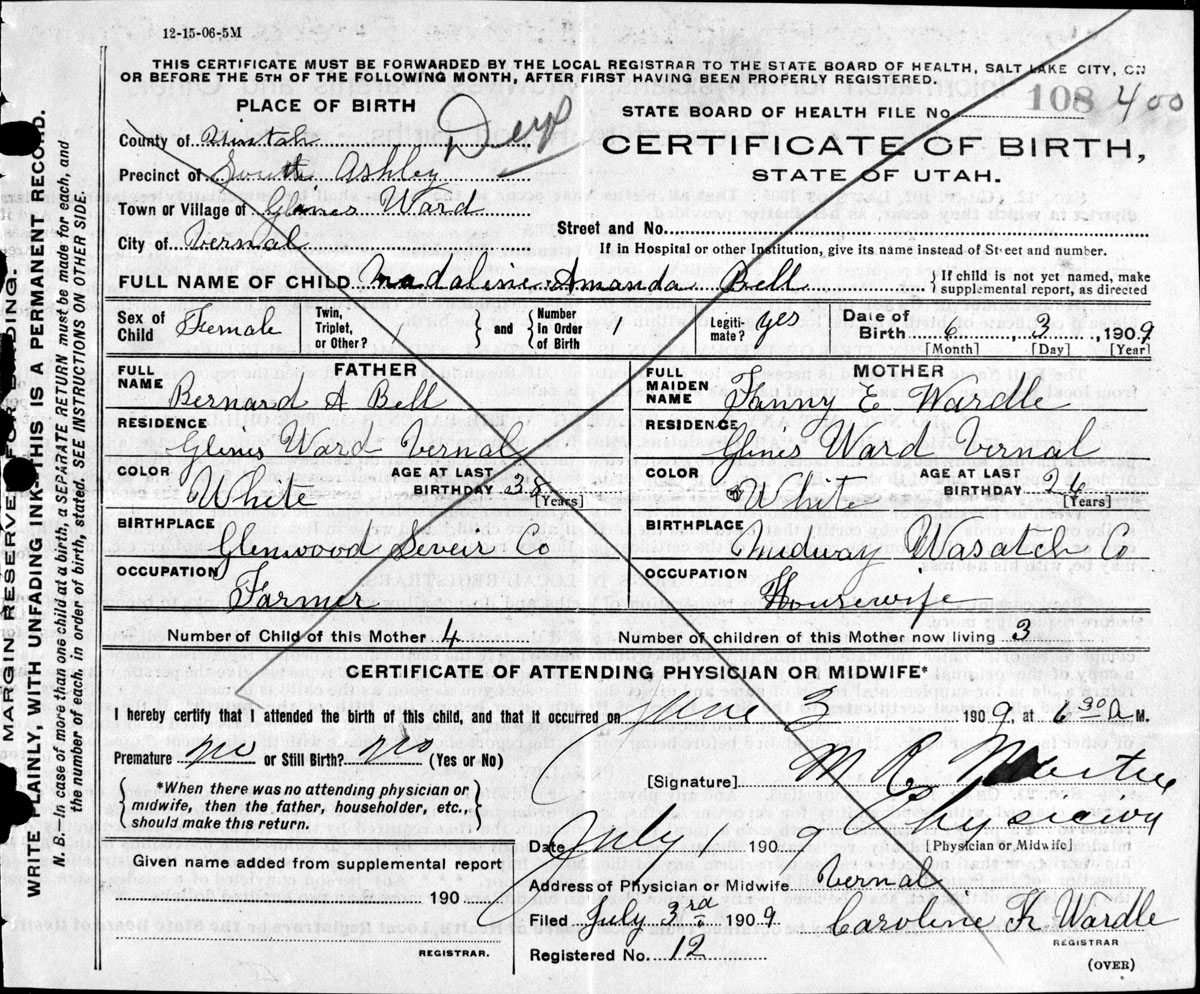 12-15-06-5M
THIS CERTIFICATE MUST BE FORWARDED BY THE LOCAL REGISTRAR TO THE STATE BOARD OF HEALTH, SALT LAKE CITY, ON
OR BEFORE THE 5TH OF THE FOLLOWING MONTH, AFTER FIRST HAVING BEEN PROPERLY REGISTERED.
MARGIN RESERVED FOR BINDING.
WRITE PLAINLY, WITH UNFADING INK—THIS IS A PERMANENT RECORD.
N. B.—In case of more than one child at a birth, a SEPARATE RETURN must be made for each, and
the number of each, in order of birth, stated. SEE INSTRUCTIONS ON OTHER SIDE.
PLACE OF BIRTH
Dup
County of Uintah
Precinct of South Ashley
Town or Village of Glines Ward
City of Vernal
STATE BOARD OF HEALTH FILE No. 108 400
CERTIFICATE OF BIRTH,
STATE OF UTAH.
Street and No.
If in Hospital or other Institution, give its name instead of Street and number.
FULL NAME OF CHILD Madaline Amanda Bell
If child is not yet named, make
supplemental report, as directed
Sex of Child Female
Twin, Triplet, or Other?
and
Number In Order of Birth
Legiti-mate? yes
Date of Birth 6, 3, 1909
[Month] [Day] [Year]
FATHER
FULL NAME Bernard A Bell
RESIDENCE Glines Ward Vernal
COLOR White
AGE AT LAST BIRTHDAY 38 [Years]
BIRTHPLACE Glenwood Seveir Co
OCCUPATION Farmer
MOTHER
FULL MAIDEN NAME Fanny E Wardle
RESIDENCE Glines Ward Vernal
COLOR White
AGE AT LAST BIRTHDAY 26 [Years]
BIRTHPLACE Midway Wasatch Co
OCCUPATION Housewife
Number of Child of this Mother 4
Number of children of this Mother now living 3
CERTIFICATE OF ATTENDING PHYSICIAN OR MIDWIFE*
I hereby certify that I attended the birth of this child, and that it occurred on June 3 1909, at 6 30 a M.
Premature no or Still Birth? no (Yes or No)
[Signature] M R
*When there was no attending physician or
midwife, then the father, householder, etc.,
should make this return.
Physician
Date July 1 1909
[Physician or Midwife]
Given name added from supplemental report
190
REGISTRAR.
Address of Physician or Midwife Vernal
Filed July 3rd 1909.
Caroline K. Wardle
REGISTRAR
Registered No. 12
(OVER)